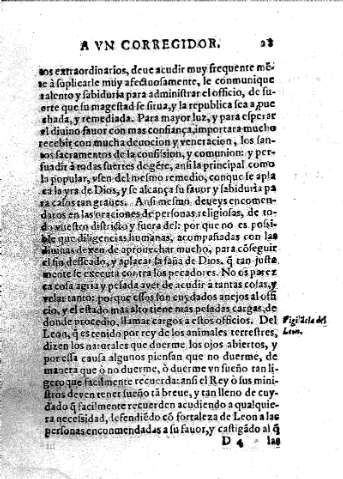 A VN CORREGIDOR. 28
tos extraordinarios, deue acudir muy frequente mẽ
te à suplicarle muy afectuosamente, le communique
talento y sabiduria para administrar el officio, de su-
erte que su magestad se sirua, y la republica sea apue
chada, y remediada. Para mayor luz, y para esperar
el diuino fauor con mas confiança, importara mucho
recebir con mucha deuocion y veneracion, los san-
tos sacramentos de la confision, y comunion: y per-
suadir à todas suertes de gẽte, ansi la principal como
la popular, vsen del mesmo remedio, conque se apla
ca la yra de Dios, y se alcança su fauor y sabiduria pa
ra casos tan graues. Ansi mesmo deueys encomen-
datos en las oraciones de personas religiosas, de to-
do vuestro distrito y fuera del: por que no es posi-
ble que diligencias humanas, acompañadas con las
diuinas dexen de aprouechar mucho, para cõseguir
el fin desseado, y aplacar la saña de Dios, q̃ tan justa
mente se executa contra los pecadores. No os parez
ca cosa agria y pesada aver de acudir a tantas cosas, y
velar tanto: porque essos son cuydados anejos al offi
cio, y el estado mas alto tiene mas pesadas cargas, de
donde procedio, llamar cargos a estos officios. Del
Leon, q̃ es tenido por rey de los animales terrestres,
dizen los naturales que duerme los ojos abiertos, y
por essa causa algunos piensan que no duerme, de
manera que ò no duerme, ò duerme vn sueño tan li
gero que facilmente recuerda: ansi el Rey ò sus mini
stros deuen tener sueño tã breue, y tan lleno de cuy-
dado q̃ facilmente recuerden acudiendo a qualquie-
ra necesidad, defendiẽdo cõ fortaleza de Leon a las
personas encommendadas a su fauor, y castigãdo al q̃
D 4 las
Vigilãcia del
Leon.